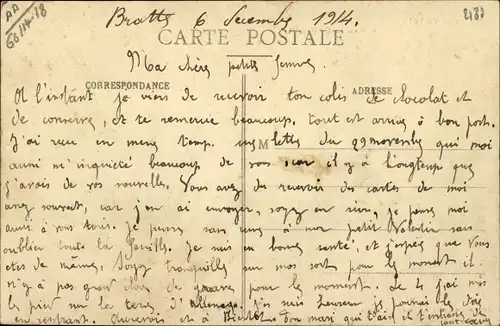 AA
66/14-18
2181
6 Decembre 1914.
CARTE POSTALE
Ma chère petite femme
CORRESPONDANCE
ADRESSE
A l'instant je viens de recevoir ton colis de chocolat et
de conserve, et te remercie beaucoup. tout est arrivé à bon port.
J'ai reçu en meme temps lettre du 29 novembre qui moi
aussi m'inquiété beaucoup de vous, car il y a longtemps que
j'avais de vos nouvelles. Vous avez du recevoir des cartes de moi
avez souvent, car j'en ai envoyer, soyez en sur, je pense moi
aussi à vous tous. Je pense à mon petit Valentin sans
oublier toute la famille. Je suis en bonne santé, et j'espere que vous
etes de même, Soyez tranquille sur mon sort pour le moment il
n'y a pas grand chose de grave pour le moment. De j'ai mis
le pied sur la terre d'Allemagne. J'en suis heureux
en rentrant. Aurevoir et à Bientôt. Ton mari qui